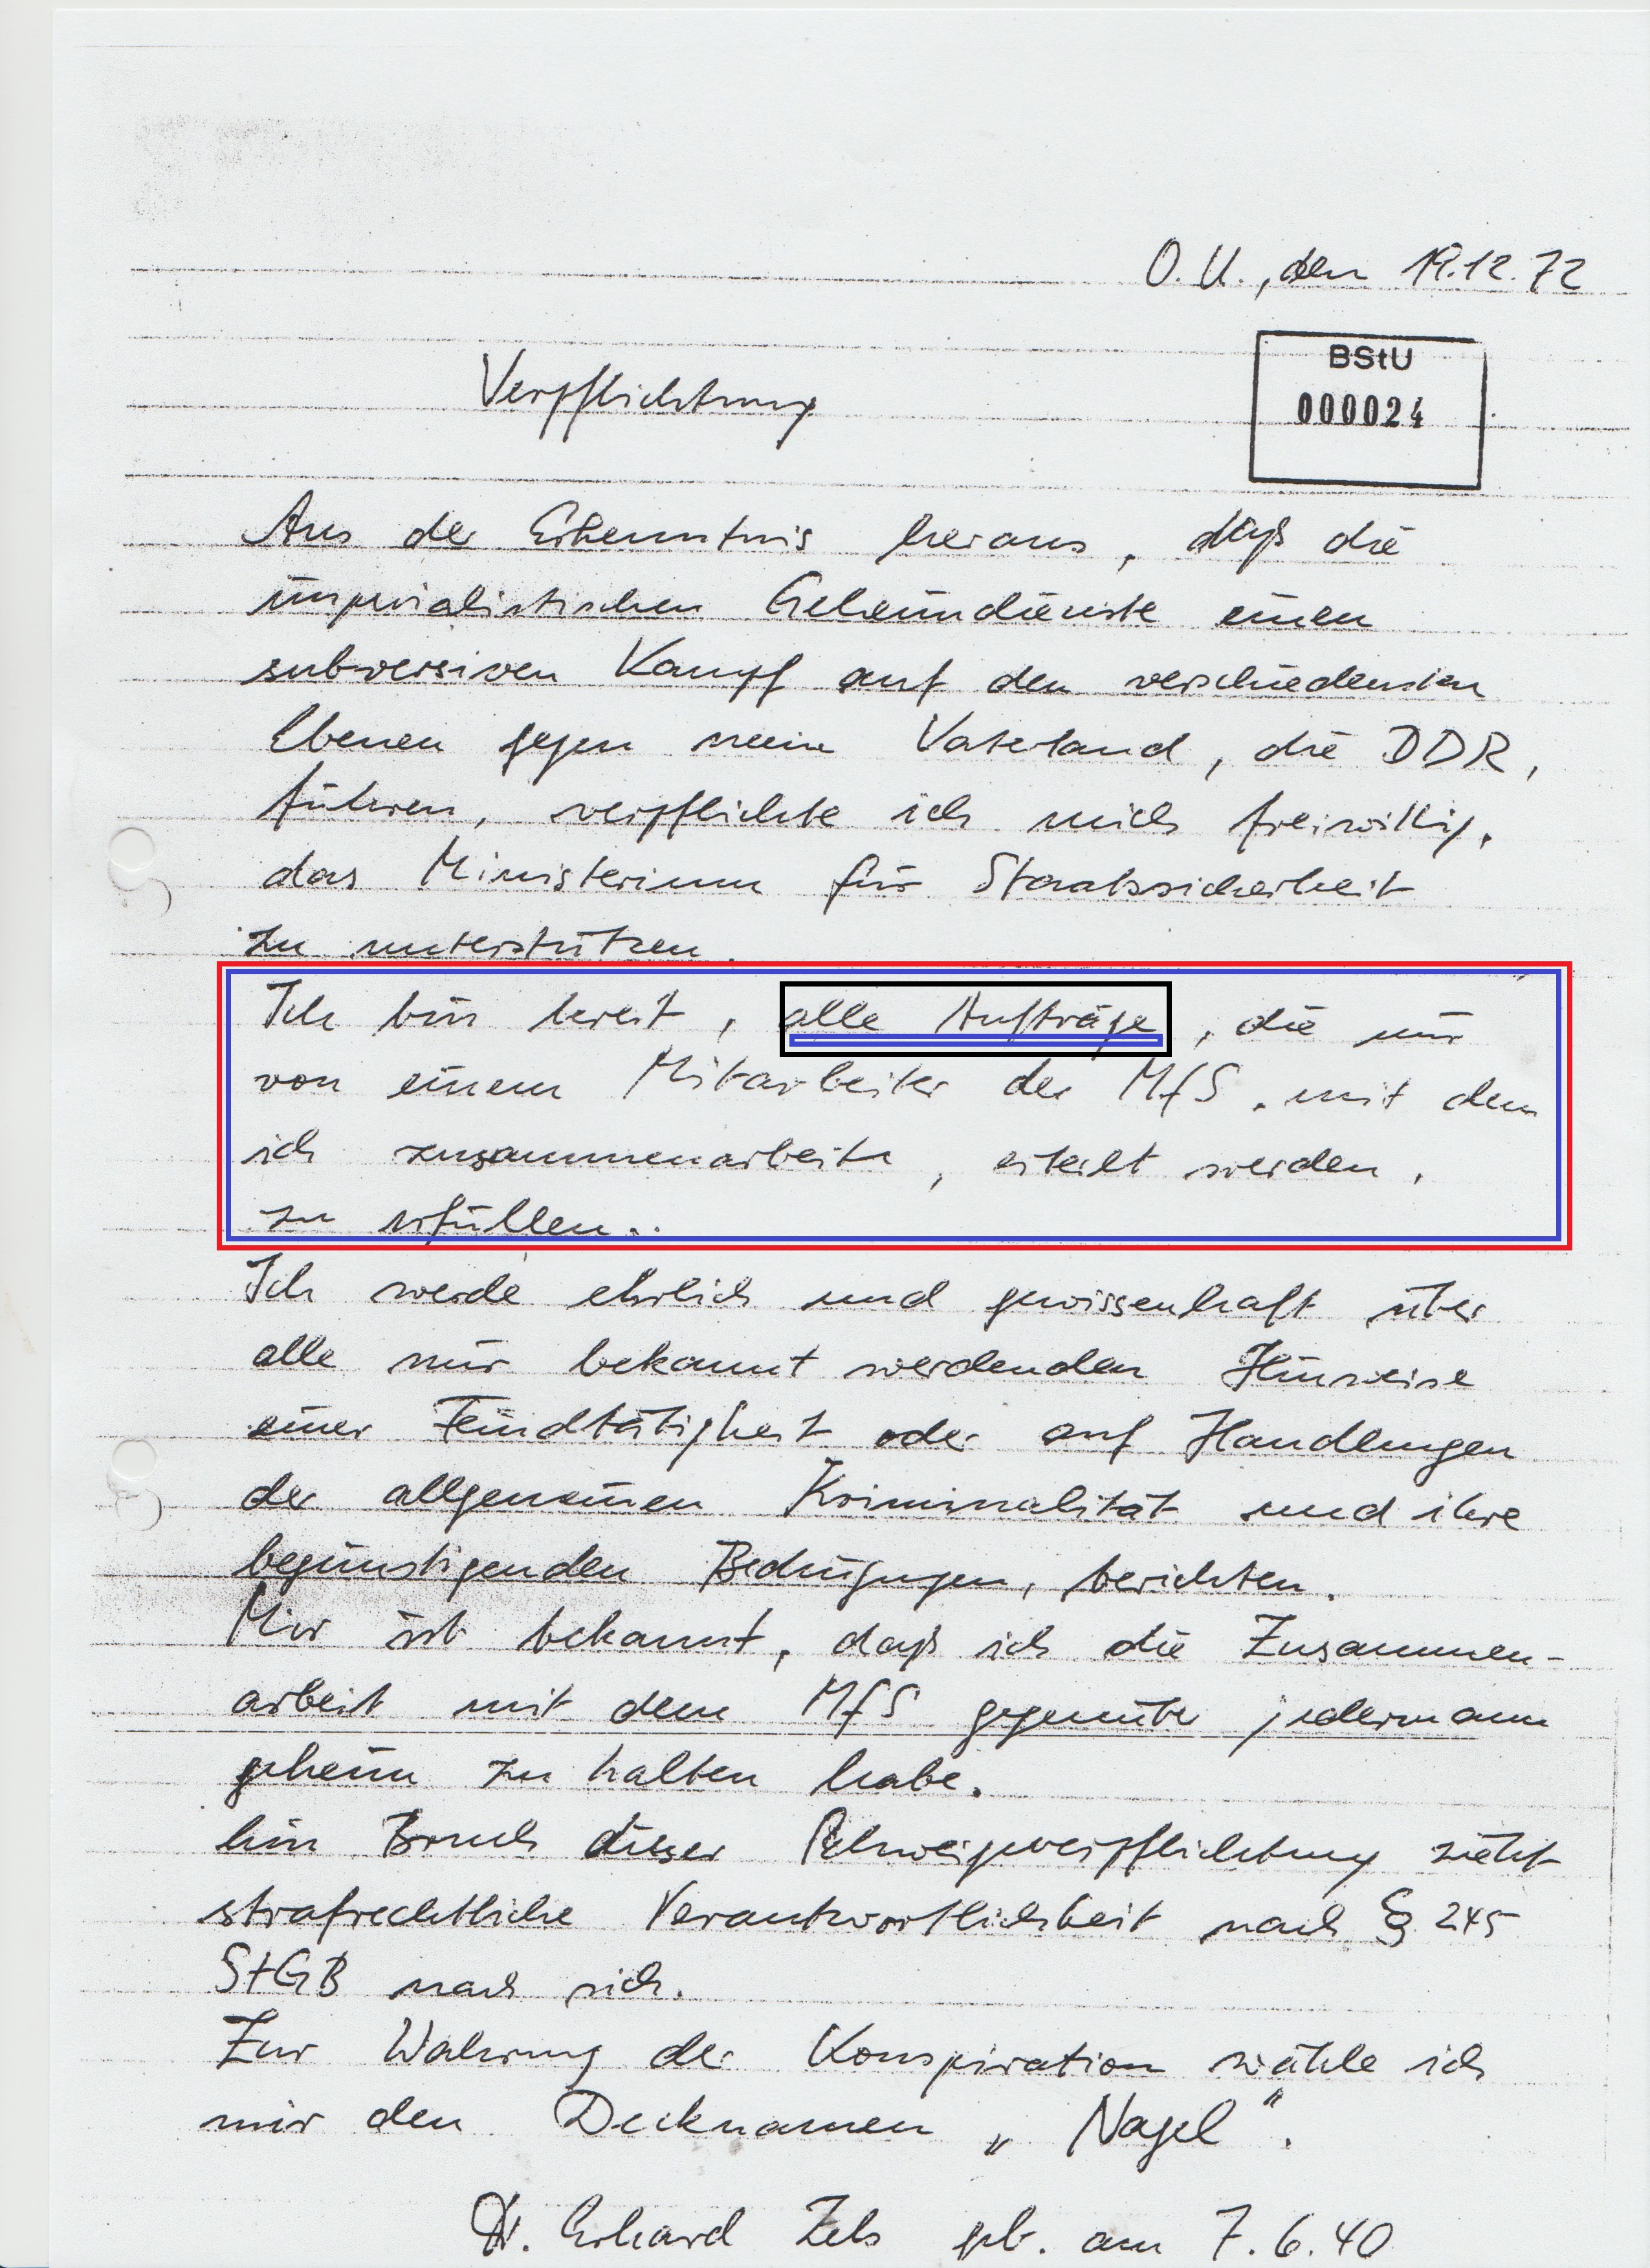 O.U., den 19.12.72
Verpflichtung
BStU
000024
Aus der Erkenntnis heraus, daß die
imperialistischen Geheimdienste einen
subversiven Kampf auf den verschiedensten
Ebenen gegen mein Vaterland, die DDR,
führen, verpflichte ich mich freiwillig,
das Ministerium für Staatssicherheit
zu unterstützen.
Ich bin bereit, alle Aufträge, die mir
von einem Mitarbeiter des MfS, mit dem
ich zusammenarbeite, erteilt werden,
zu erfüllen.
Ich werde ehrlich und gewissenhaft über
alle mir bekannt werdenden Hinweise
einer Feindtätigkeit oder auf Handlungen
der allgemeinen Kriminalität und ihre
begünstigenden Bedingungen, berichten.
Mir ist bekannt, daß ich die Zusammen-
arbeit mit dem MfS gegenüber jedermann
geheim zu halten habe.
Ein Bruch dieser Schweigeverpflichtung zieht
strafrechtliche Verantwortlichkeit nach § 245
StGB nach sich.
Zur Wahrung der Konspiration wähle ich
mir den Decknamen „Nagel".
Dr. Erhard geb. am 7.6.40